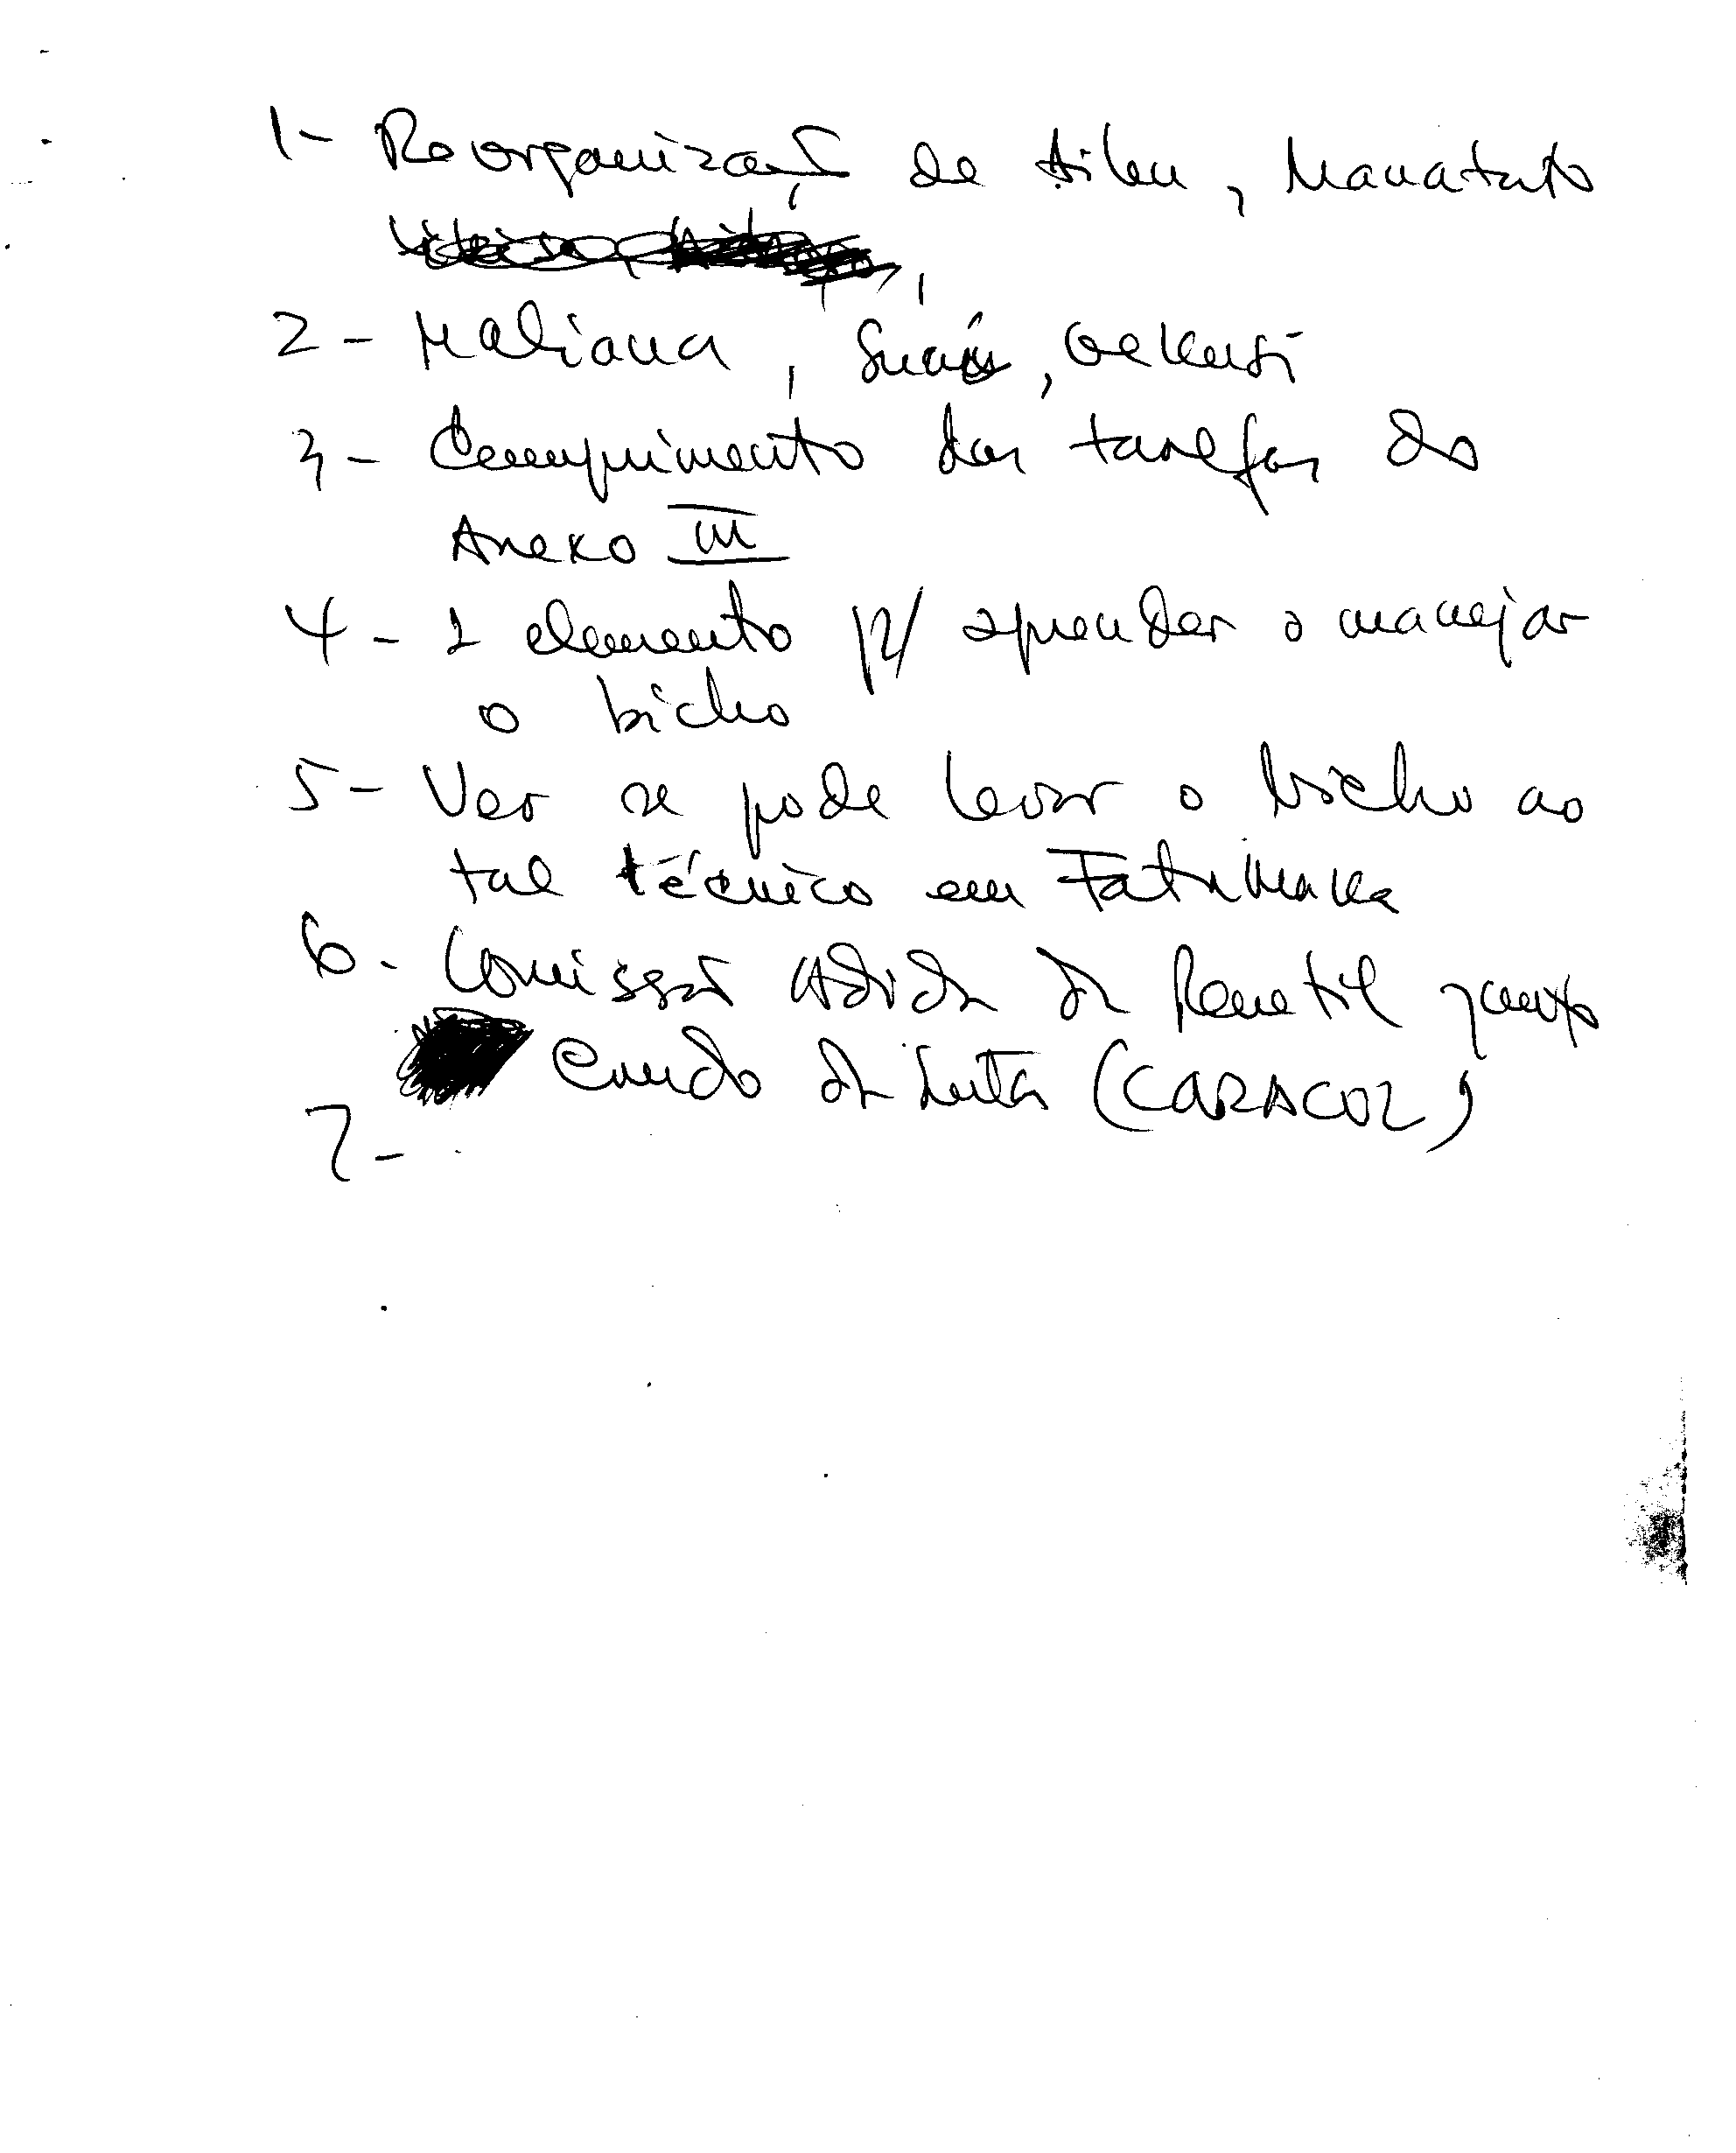 1- Reorganização de Aileu, Manatuto
2- Maliana, Suai, Oekusi
3- Comprimento das tarefas do
Anexo III
4- 1 elemento p/ aprender o manejar
o bicho
5- Ver se pode levar o bicho ao
tal técnico em Fatumaka
6- Comissão Adida da Renetil junto
Comdo da Luta (CARACOL)
7-